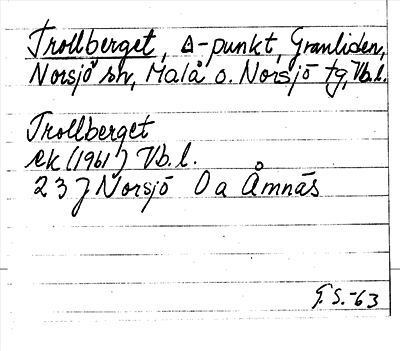 Trollberget, Δ-punkt, Granliden,
Norsjö sn, Malå o. Norsjö tg, Vb.l.
Trollberget
ek (1961) Vb.l.
23 J Norsjö 0a Åmnäs
G.S.-63